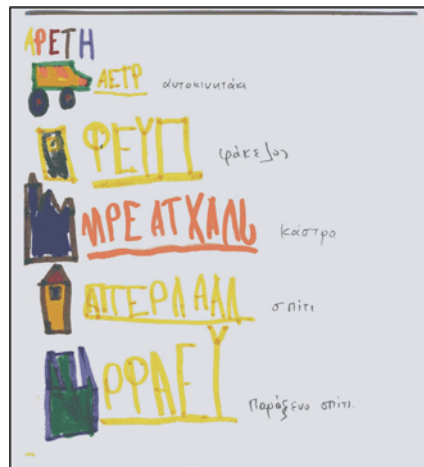 ΑΡΕΤΗ
ΑΕΤΡ αυτοκινητάκι
ΦΕΥΠ φάκελος
ΜΡΕΑΤΧΑΝ κάστρο
ΑΠΕΡΛΑΑΛ σπίτι
ΡΦΑΕΥ παράξενο σπίτι.